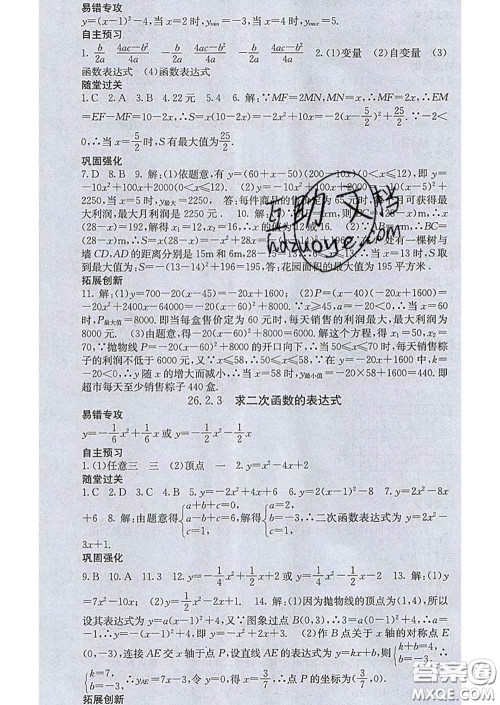 易错专攻
y=(x-1)²-4,当x=2时,y min=-3,当x=4时,y max=5.
自主预习
1. -b/2a (4ac-b²)/4a -b/2a (4ac-b²)/4a 2.(1)变量 (2)自变量 (3)
函数表达式 (4)函数表达式
随堂过关
1.C 2.A 3.B 4.22元 5.4 6.解:∵MF=2MN,MN=x,∴MF=2x,∴EM
=EF-MF=10-2x,∴S=x(10-2x)=-2x²+10x=-2(x-5/2)²+25/2.∵-2
<0,∴当x=5/2时,S有最大值为25/2.
巩固强化
7.D 8.B 9.解:(1)依题意,有y=(60+x-50)(200-10x)(0<x≤12),即y=
-10x²+100x+2000(0<x≤12). (2)y=-10x²+100x+2000=-10(x-5)²+
2250,当x=5时,y最大=2250, 答:每件商品的售价定为65元时,每个月可获得最
大利润,最大月利润是2250元. 10.解:(1)∵
解得x₁=12,x₂=16,答:x的值为12或16. (2)
28x=-(x-14)²+196.
墙CD,AD的距离分别是15m和6m,
到最大值为:S=-(13-14)²+196=195,答:花园面积的最大值为195平方米.
拓展创新
11.解:(1)y=700-20(x-45)=-20x+1600; (2)P=(x-40)(-20x+1600)=
-20x²+2400x-64000=-20(x-60)²+8000.∵x≥45,a=-20<0,∴当x=60
时,P最大值=8000.即当每盒售价定为60元时,每天销售的利润最大,最大利润为
8000元. (3)由题意,得-20(x-60)²+8000=6000.解这个方程,得x₁=50,x₂=
70.∵抛物线P=-20(x-60)²+8000的开口向下,∴当50≤x≤70时,每天销售粽
子的利润不低于6000元,又∵x≤58,∴50≤x≤58.∵在y=-20x+1600中,k=
-20<0,∴y随x的增大而减小,∴当x=58时,y最小值=-20×58+1600=440.即
超市每天至少销售粽子440盒.
26.2.3 求二次函数的表达式
易错专攻
y=-1/6x²+1/6x或y=-1/2x²-1/2x
自主预习
1.(1)任意三 三 (2)顶点 一 2.y=x²-4x+2
随堂过关
1.C 2.D 3.A 4.B 5.y=-2x²+4x+6 6.y=2(x-1)²-2 7.y=2x²-8x
+6 8.解:由题意得{a+b+c=0, c=1, a-b+c=6, 解得{a=2, b=-3, c=1, ∴二次函数表达式为y=2x²-
3x+1.
巩固强化
9.B 10.A 11.3 12.y=-1/4x²+1/2x+2或y=1/2x²-1/2x-2 13.解:(1)y
=7x²-10x; (2)y=1/2x²-2x+1. 14.解:(1)因为抛物线的顶点为(1,4),所以
设其表达式为y=a(x-1)²+4,又∵图象过点B(0,3),∴3=a(0-1)²+4,∴a=
-1,∴y=-(x-1)²+4,即y=-x²+2x+3. (2)作B点关于x轴的对称点E
(0,-3),连接AE交x轴于点P,设直线AE的表达式为y=kx+b,则{k+b=4, b=-3, ∴
{k=7, b=-3, ∴yAE=7x-3,令y=0,得x=3/7,∴点P的坐标为(3/7,0).
拓展创新
互助文档
hdzuoye.com
答案圈
MXQE.COM